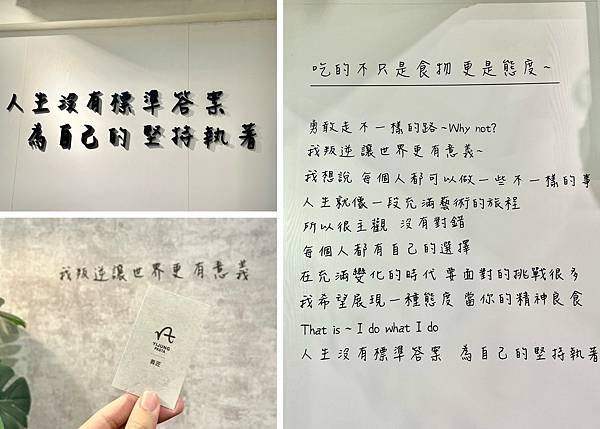 人生沒有標準答案
為自己的堅持執著
我叛逆讓世界更有意義
YIJUNG
PASTA
義匠
吃的不只是食物 更是態度~
勇敢走不一樣的路~Why not?
我叛逆讓世界更有意義~
我想說 每個人都可以做一些不一樣的事
人生就像一段充滿藝術的旅程
所以很主觀 沒有對錯
每個人都有自己的選擇
在充滿變化的時代 要面對的挑戰很多
我希望展現一種態度 當你的精神良食
That is ~ I do what I do
人生沒有標準答案 為自己的堅持執著